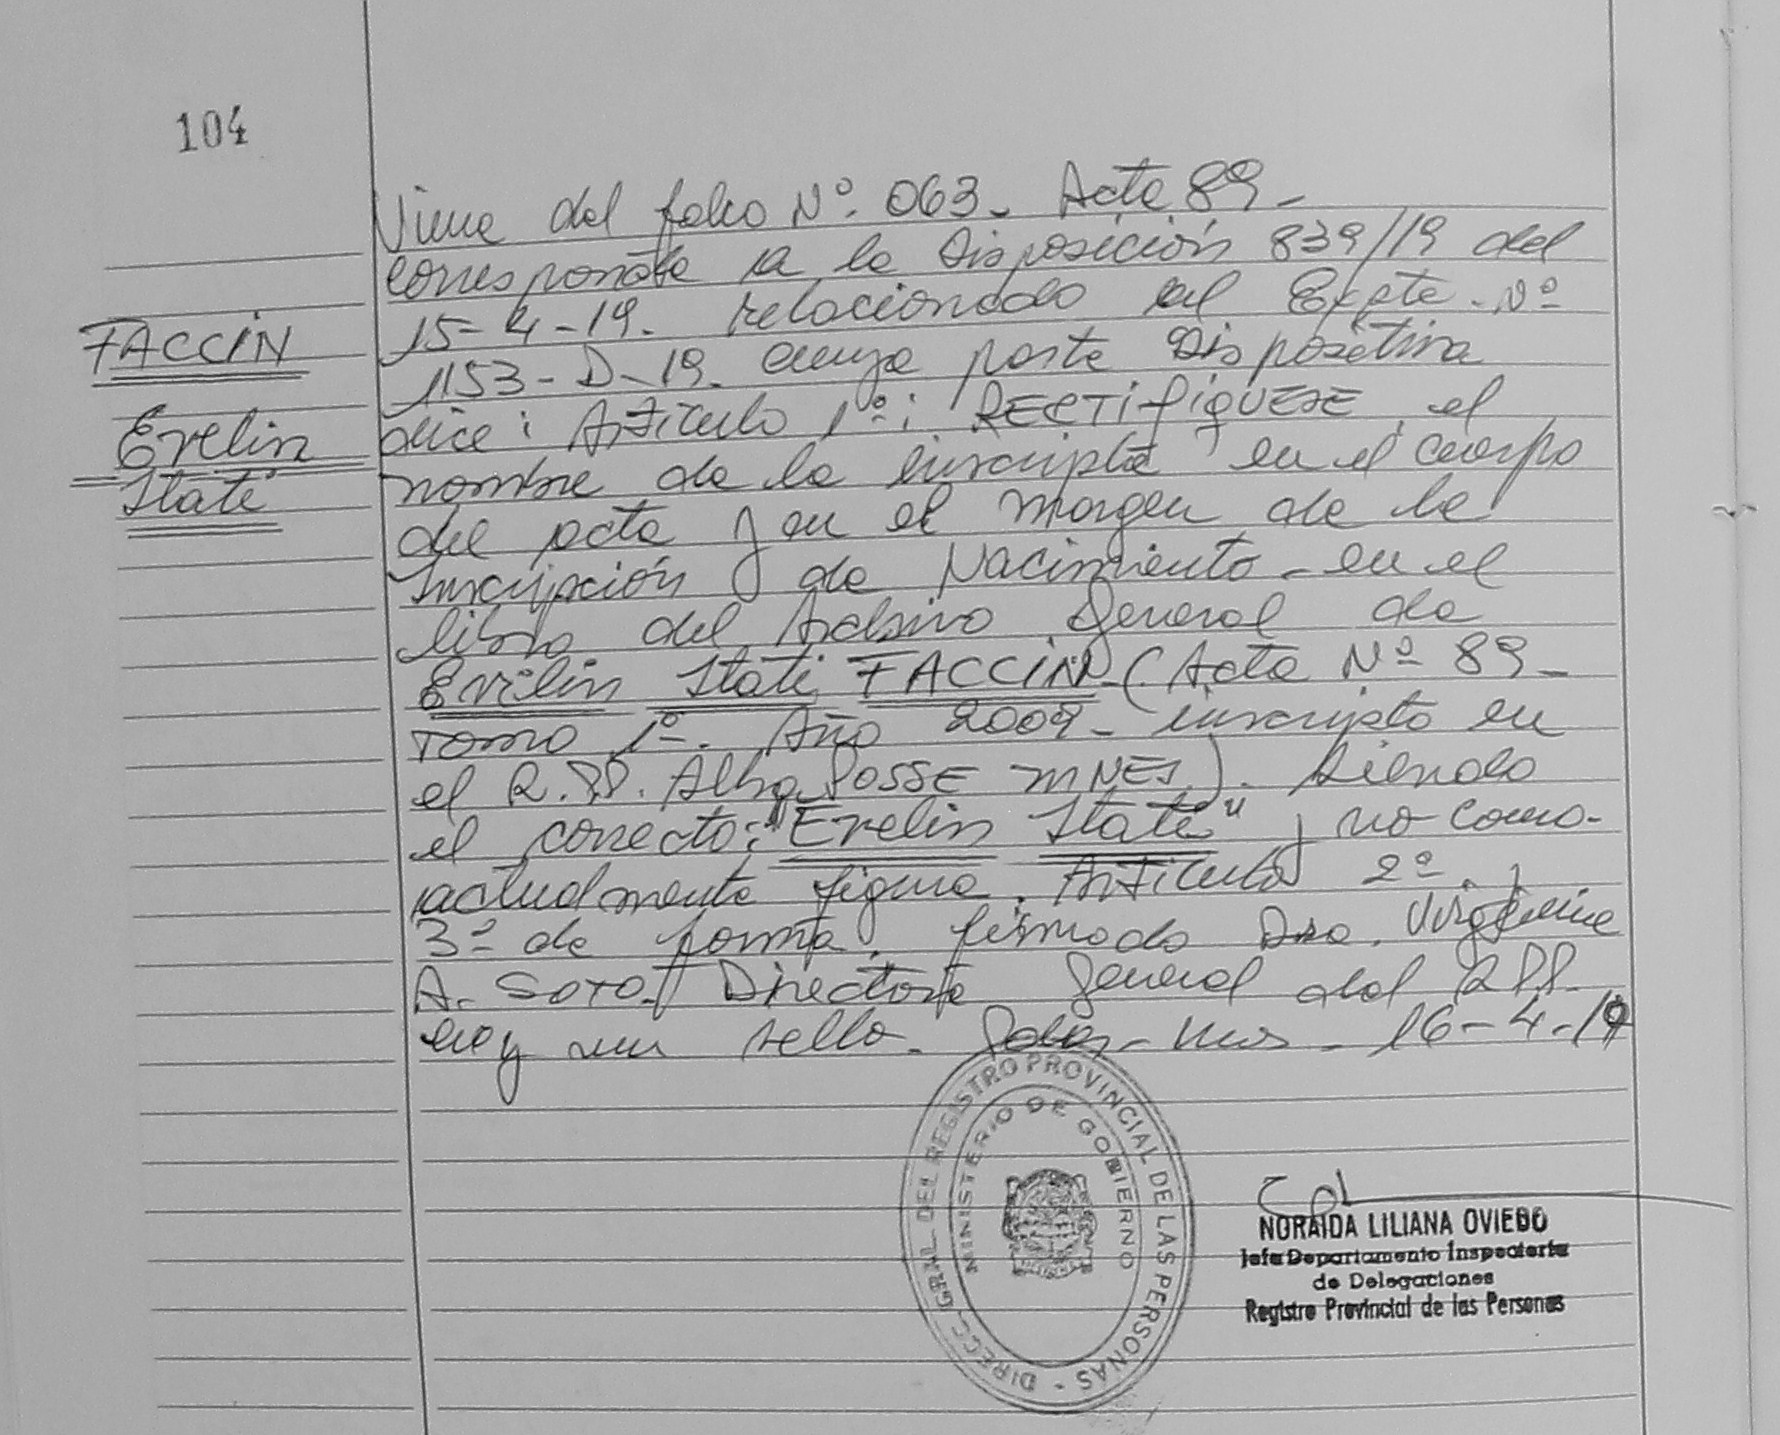 104
Viene del folio Nº. 063. Acta 89_
corresponde a la Disposición 839/19 del
15-4-19. relacionado al Expte. Nº
1153-D-19. cuya parte Dispositiva
dice: Artículo 1º: RECTIFIQUESE, el
nombre de la inscripta en el cuerpo
del acta y en el margen de la
Inscripción de Nacimiento - en el
libro del Archivo General de
Evilin Itatí FACCIN (Acta Nº 89_
Tomo 1º. Año 2009_ inscripto en
el R.PP. Alba POSSE MNES). Siendo
el correcto: "Evelin Itatí" y no como
actualmente figura. Artículo 2º y
3º de forma. firmado Dra. Virginia
A. SOTO. Directora General del RPP.
Hay un sello. Pdas. Mns. 16-4-19
FACCIN
Evelin
Itatí
DIRECC. GRAL. DEL REGISTRO PROVINCIAL DE LAS PERSONAS -
MINISTERIO DE GOBIERNO
NORAIDA LILIANA OVIEDO
Jefa Departamento Inspectoría
de Delegaciones
Registro Provincial de las Personas